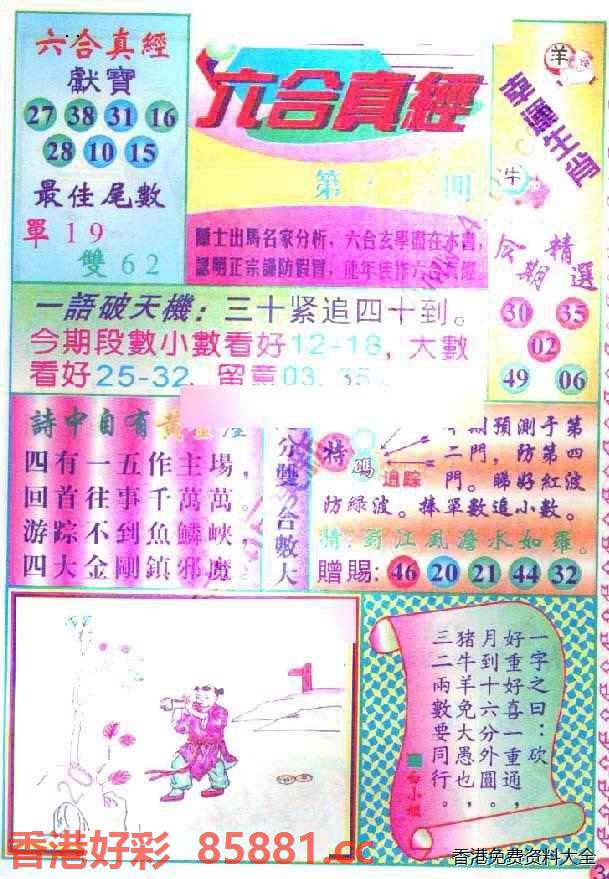 六合真經
獻寶
27 38 31 16
28 10 15
最佳尾數
單19
雙62
六合真經
第 期
隱士出馬名家分析，六合玄學盡在本書，
認明正宗謹防假冒，龍年佳作六合真經
羊
幸運生肖
牛
今期精選
30 35
02
49 06
一語破天機：三十紧追四十到。
今期段數小數看好12-18，大數
看好25-32，留意03.35
詩中自有黃金屋
四有一五作主場，
回首往事千萬萬。
游踪不到魚鱗峽，
四大金剛鎮邪魔。
分雙合數大
特碼
追踪
期預測于第
二門，防第四
門。睇好紅波
防綠波。捧單數追小數。
贈賜：46 20 21 44 32
一字之曰：砍
好重好喜一重通，
月到十六分外圓。
猪牛羊免大愚也，
三二兩數要同行。
香港好彩 85881.cc
香港免费资料大全
3